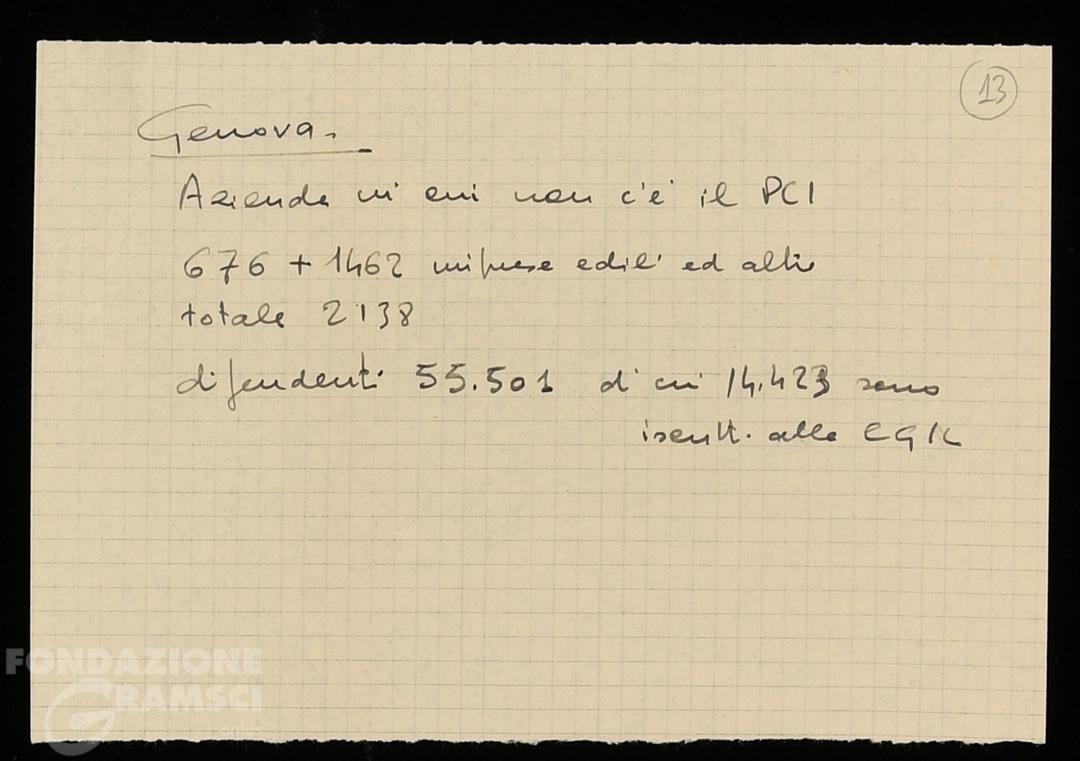 13
Genova.
Aziende in cui non c'è il PCI
676 + 1462 imprese edili ed altre
totale 2138
dipendenti 55.501 di cui 14.423 sono
iscritti alla CGIL
FONDAZIONE
GRAMSCI